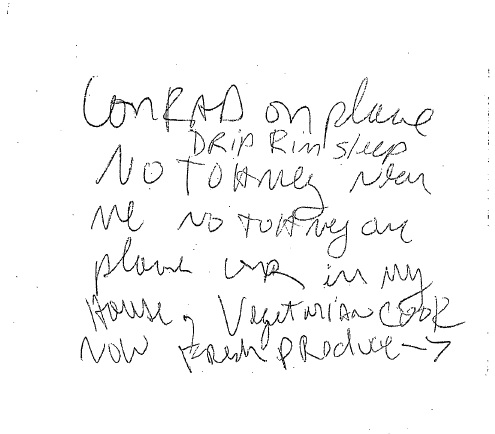 CONRAD on plane
DRIP Rim sleep
NO TOHMey Near
Me NO TOHMey on
plane or in my
House, Vegetarian COOK
NOW Fresh PRODUCE →